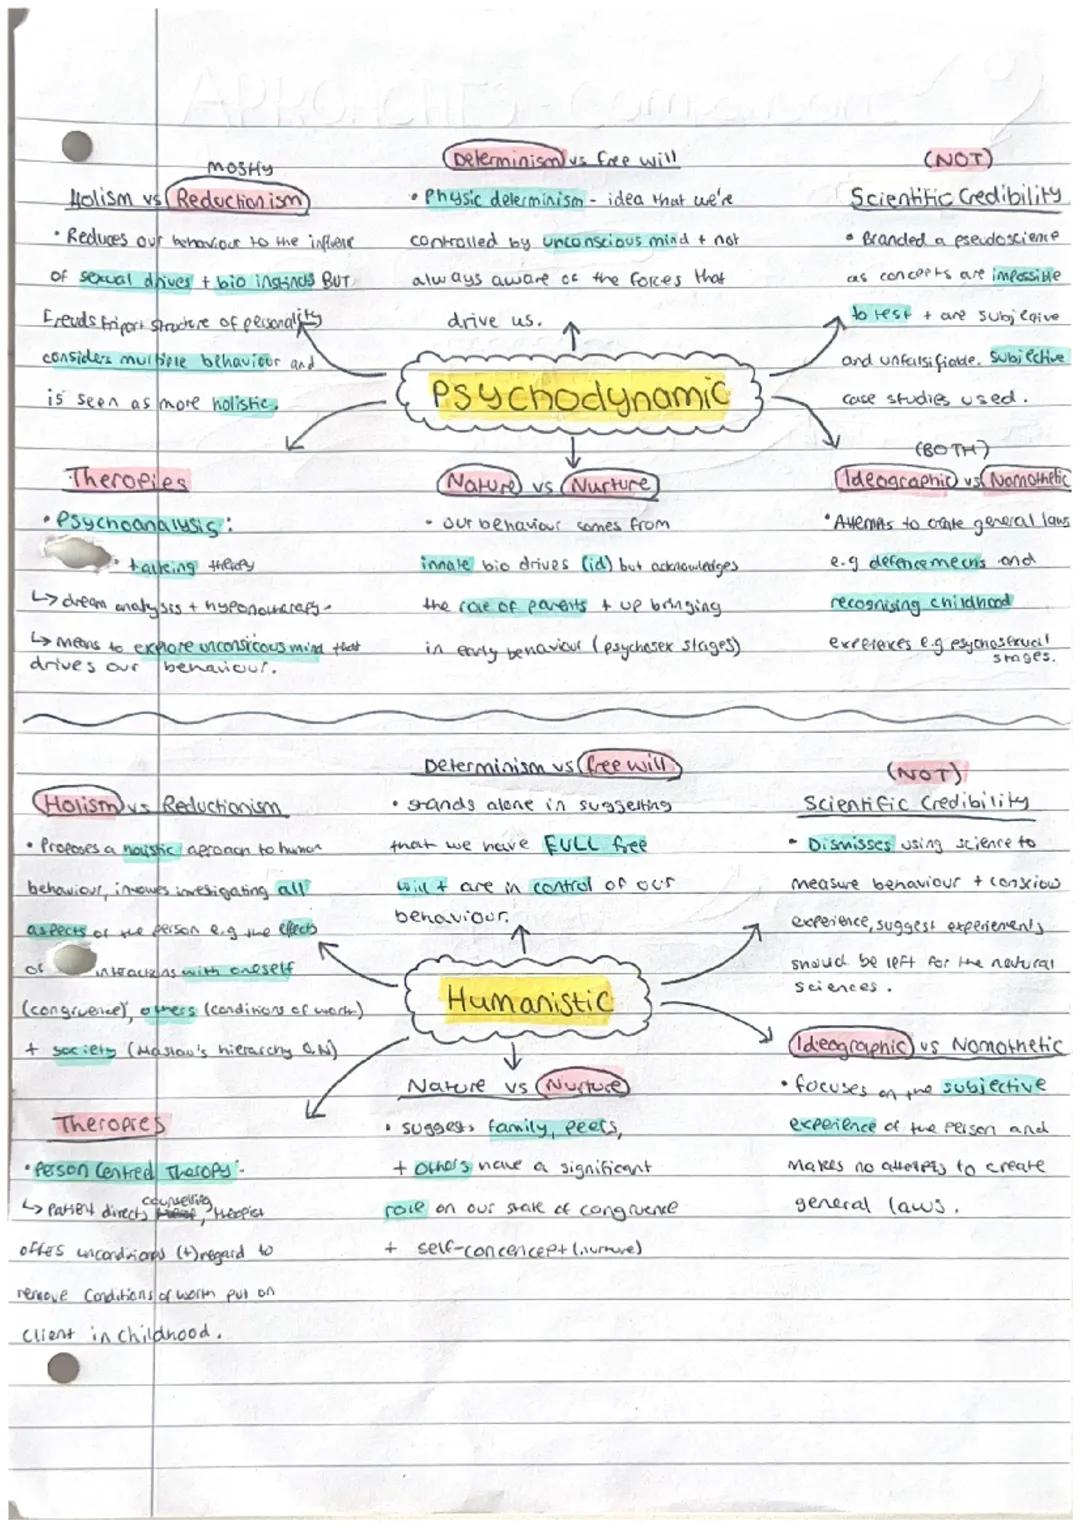 mostly
Holism vs Reductionism
• Reduces our behaviour to the influence
of sexual drives + bio instincts BUT
Freuds tripart structure of personality
considers multiple behaviour and
is seen as more holistic.
Determinism vs free will
• Physic determinism - idea that we're
controlled by unconscious mind + not
always aware of the forces that
drive us.
(NOT)
Scientific Credibility
• Branded a pseudoscience
as concepts are impossible
to test + are subjective
and unfalsifiable. Subjective
case studies used.
Psychodynamic
Therapies
• Psychoanalysis:
• talking therapy
↳ dream analysis + hypnotherapy
↳ means to explore unconsicous mind that
drives our behaviour.
Nature vs Nurture
- our behaviour comes from
innate bio drives (id) but acknowledges
the role of parents + up bringing
in early behaviour (psychosex stages)
(BOTH)
Ideographic vs Nomothetic
• Attempts to create general laws
e.g defence mechs and
recognising childhood
experiences e.g psychosexual
stages.
Holism vs Reductionism
• Proposes a holistic approach to human
behaviour, involves investigating all
aspects of the person e.g the effects
of interactions with oneself
(congruence), others (conditions of worth)
+ society (Maslow's hierarchy O.N)
Determinism vs free will
• stands alone in suggesting
that we have FULL free
will + are in control of our
behaviour.
(NOT)
Scientific Credibility
• Dismisses using science to
measure behaviour + conscious
experience, suggest experiements
should be left for the natural
sciences.
Humanistic
Therapies
• Person Centred Therapy -
counselling
↳ patient directs, therapist
offers unconditional (+) regard to
remove conditions of worth put on
client in childhood.
Nature vs Nurture
• suggests family, peers,
+ others have a significant
role on our state of congruence
+ self-concencept (nurture)
Ideographic vs Nomothetic
• focuses on the subjective
experience of the person and
makes no attempts to create
general laws.